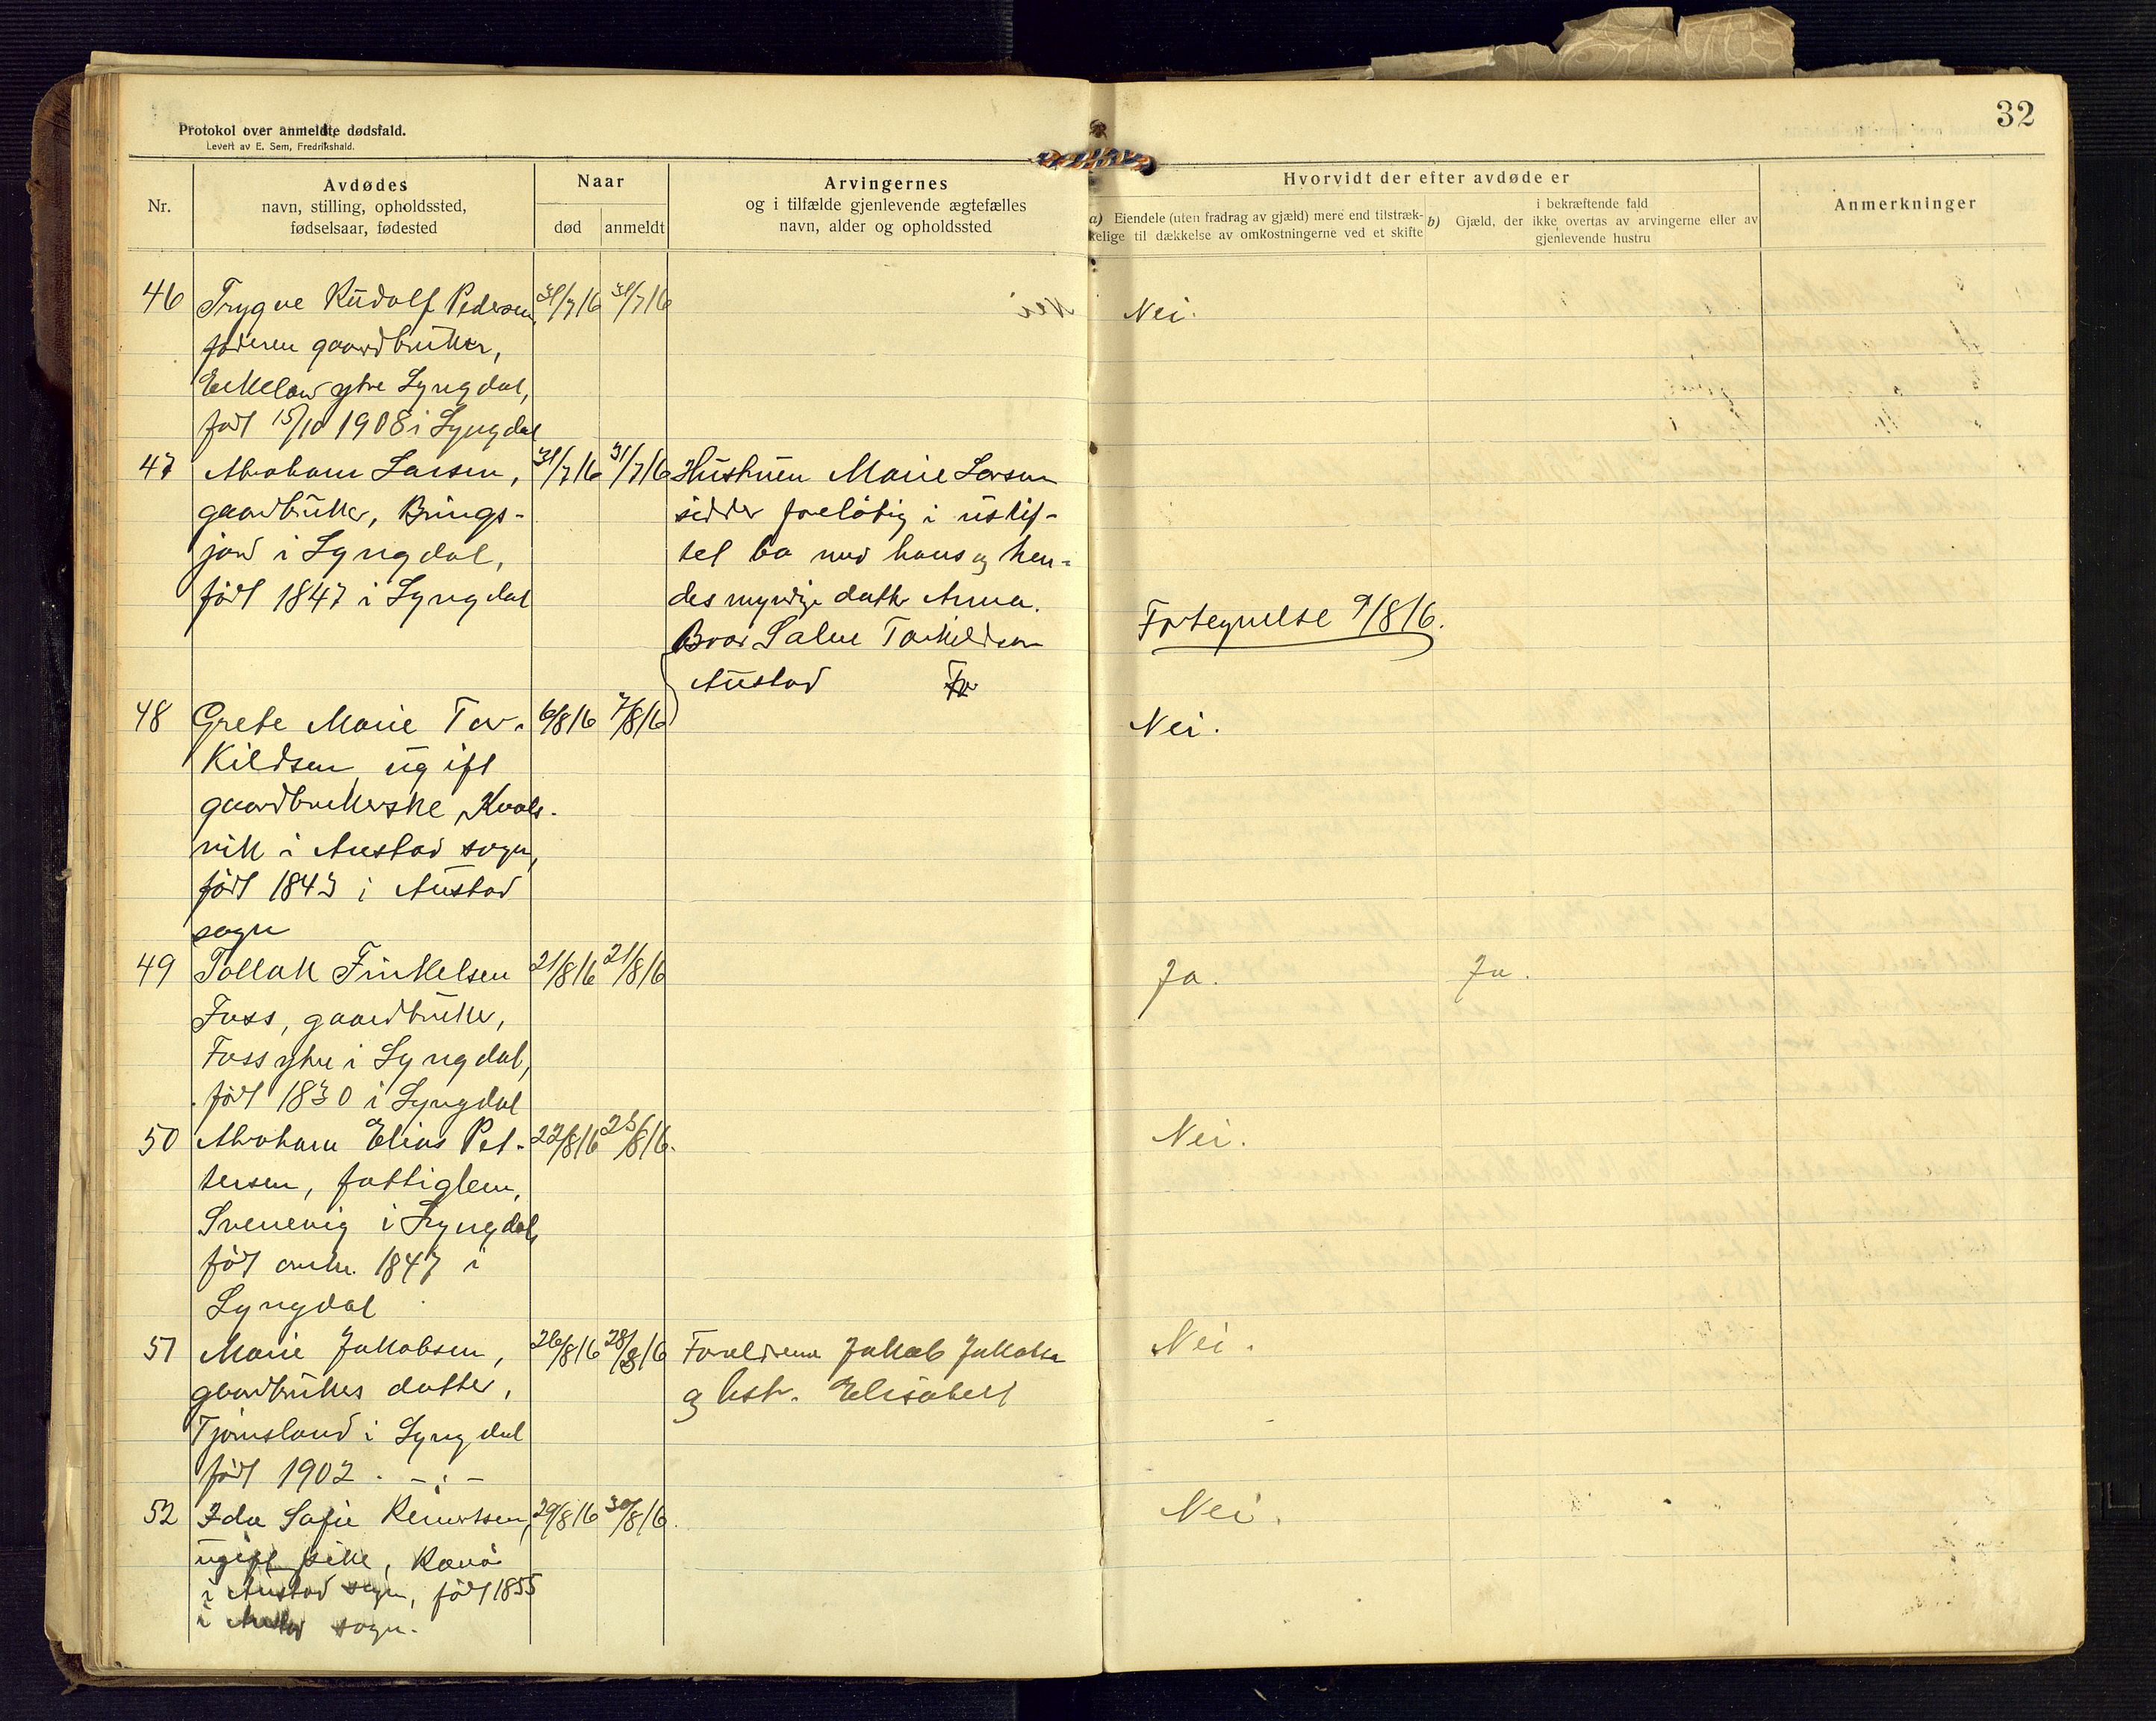 32
Protokol over anmeldte dødsfald.
Levert av E. Sem, Fredrikshald.
Nr.
Avdødes
navn, stilling, opholdssted,
fødselsaar, fødested
Naar
død
anmeldt
Arvingernes
og i tilfælde gjenlevende ægtefælles
navn, alder og opholdssted
Hvorvidt der efter avdøde er
a) Eiendele (uten fradrag av gjæld) mere end tilstræk-
kelige til dækkelse av omkostningerne ved et skifte
i bekræftende fald
b) Gjæld, der ikke overtas av arvingerne eller av
gjenlevende hustru
Anmerkninger
46 Trygve Rudolf Pedersen, 31/7 16 31/7 16 Nei.
faderen gaardbruker,
ytre Lyngdal,
født 15/10 1908 i Lyngdal
47 Abraham Larsen, 31/7 16 31/7 16 Hustruen Marie Larsen
gaardbruker, Brings- sidder foreløbig i uskif-
jord i Lyngdal, tet bo med hans og hen-
født 1847 i Lyngdal des myndige datter Anna.
Fortegnelse 9/8 16.
Bror Salve Torkildsen
Austad
48 Grete Marie Tor- 6/8 16 7/8 16 Nei.
kildsen ugift
gaardbrukerske, Kvols-
vik i Austad sogn,
født 1843 i Austad
sogn
49 Tollak Finkelsen 21/8 16 21/8 16 Ja. Ja.
Foss, gaardbruker,
Foss ytre i Lyngdal,
født 1830 i Lyngdal
50 Abraham Elias Pet- 22/8 16 25/8 16. Nei.
tersen, fattiglem,
Svenevig i Lyngdal,
født omkr. 1847 i
Lyngdal
51 Marie Jakobsen, 26/8 16 28/8 16 Forældrene Jakob Jakobsen Nei.
gaardbrukers datter, og hstr. Elisabeth
Tjomsland i Lyngdal
født 1902. -:-
52 Ida Sofie Reinertsen, 29/8 16 30/8 16. Nei.
ugift pike,
i Austad sogn, født 1855
i Austad sogn.